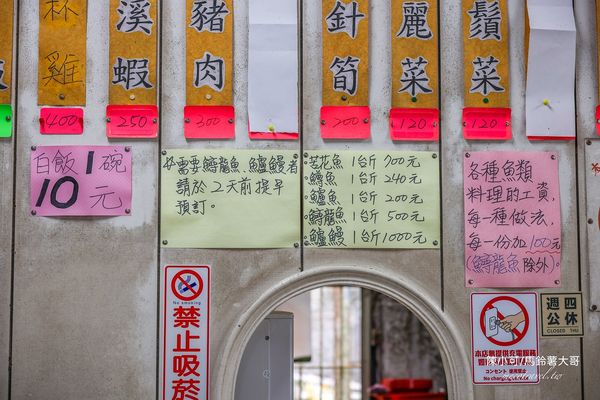 杯雞
400
溪蝦
250
豬肉
300
針筍
200
麗菜
120
鬚菜
120
白飯1碗
10元
需要鱘龍魚 鱸鰻者
請於2天前提早
預訂。
苦花魚 1台斤 700元
鯛魚 1台斤 240元
鱸魚 1台斤 200元
鱘龍魚 1台斤 500元
鱸鰻 1台斤 1000元
各種魚類
料理的工資,
每一種做法,
每一份加100元
(鱘龍魚除外)。
NO SMOKING
禁止吸菸
本店無提供充電服務
コンセント 使用禁止
No charging
週四
公休
CLOSED THU
陳小可/馬鈴薯大哥